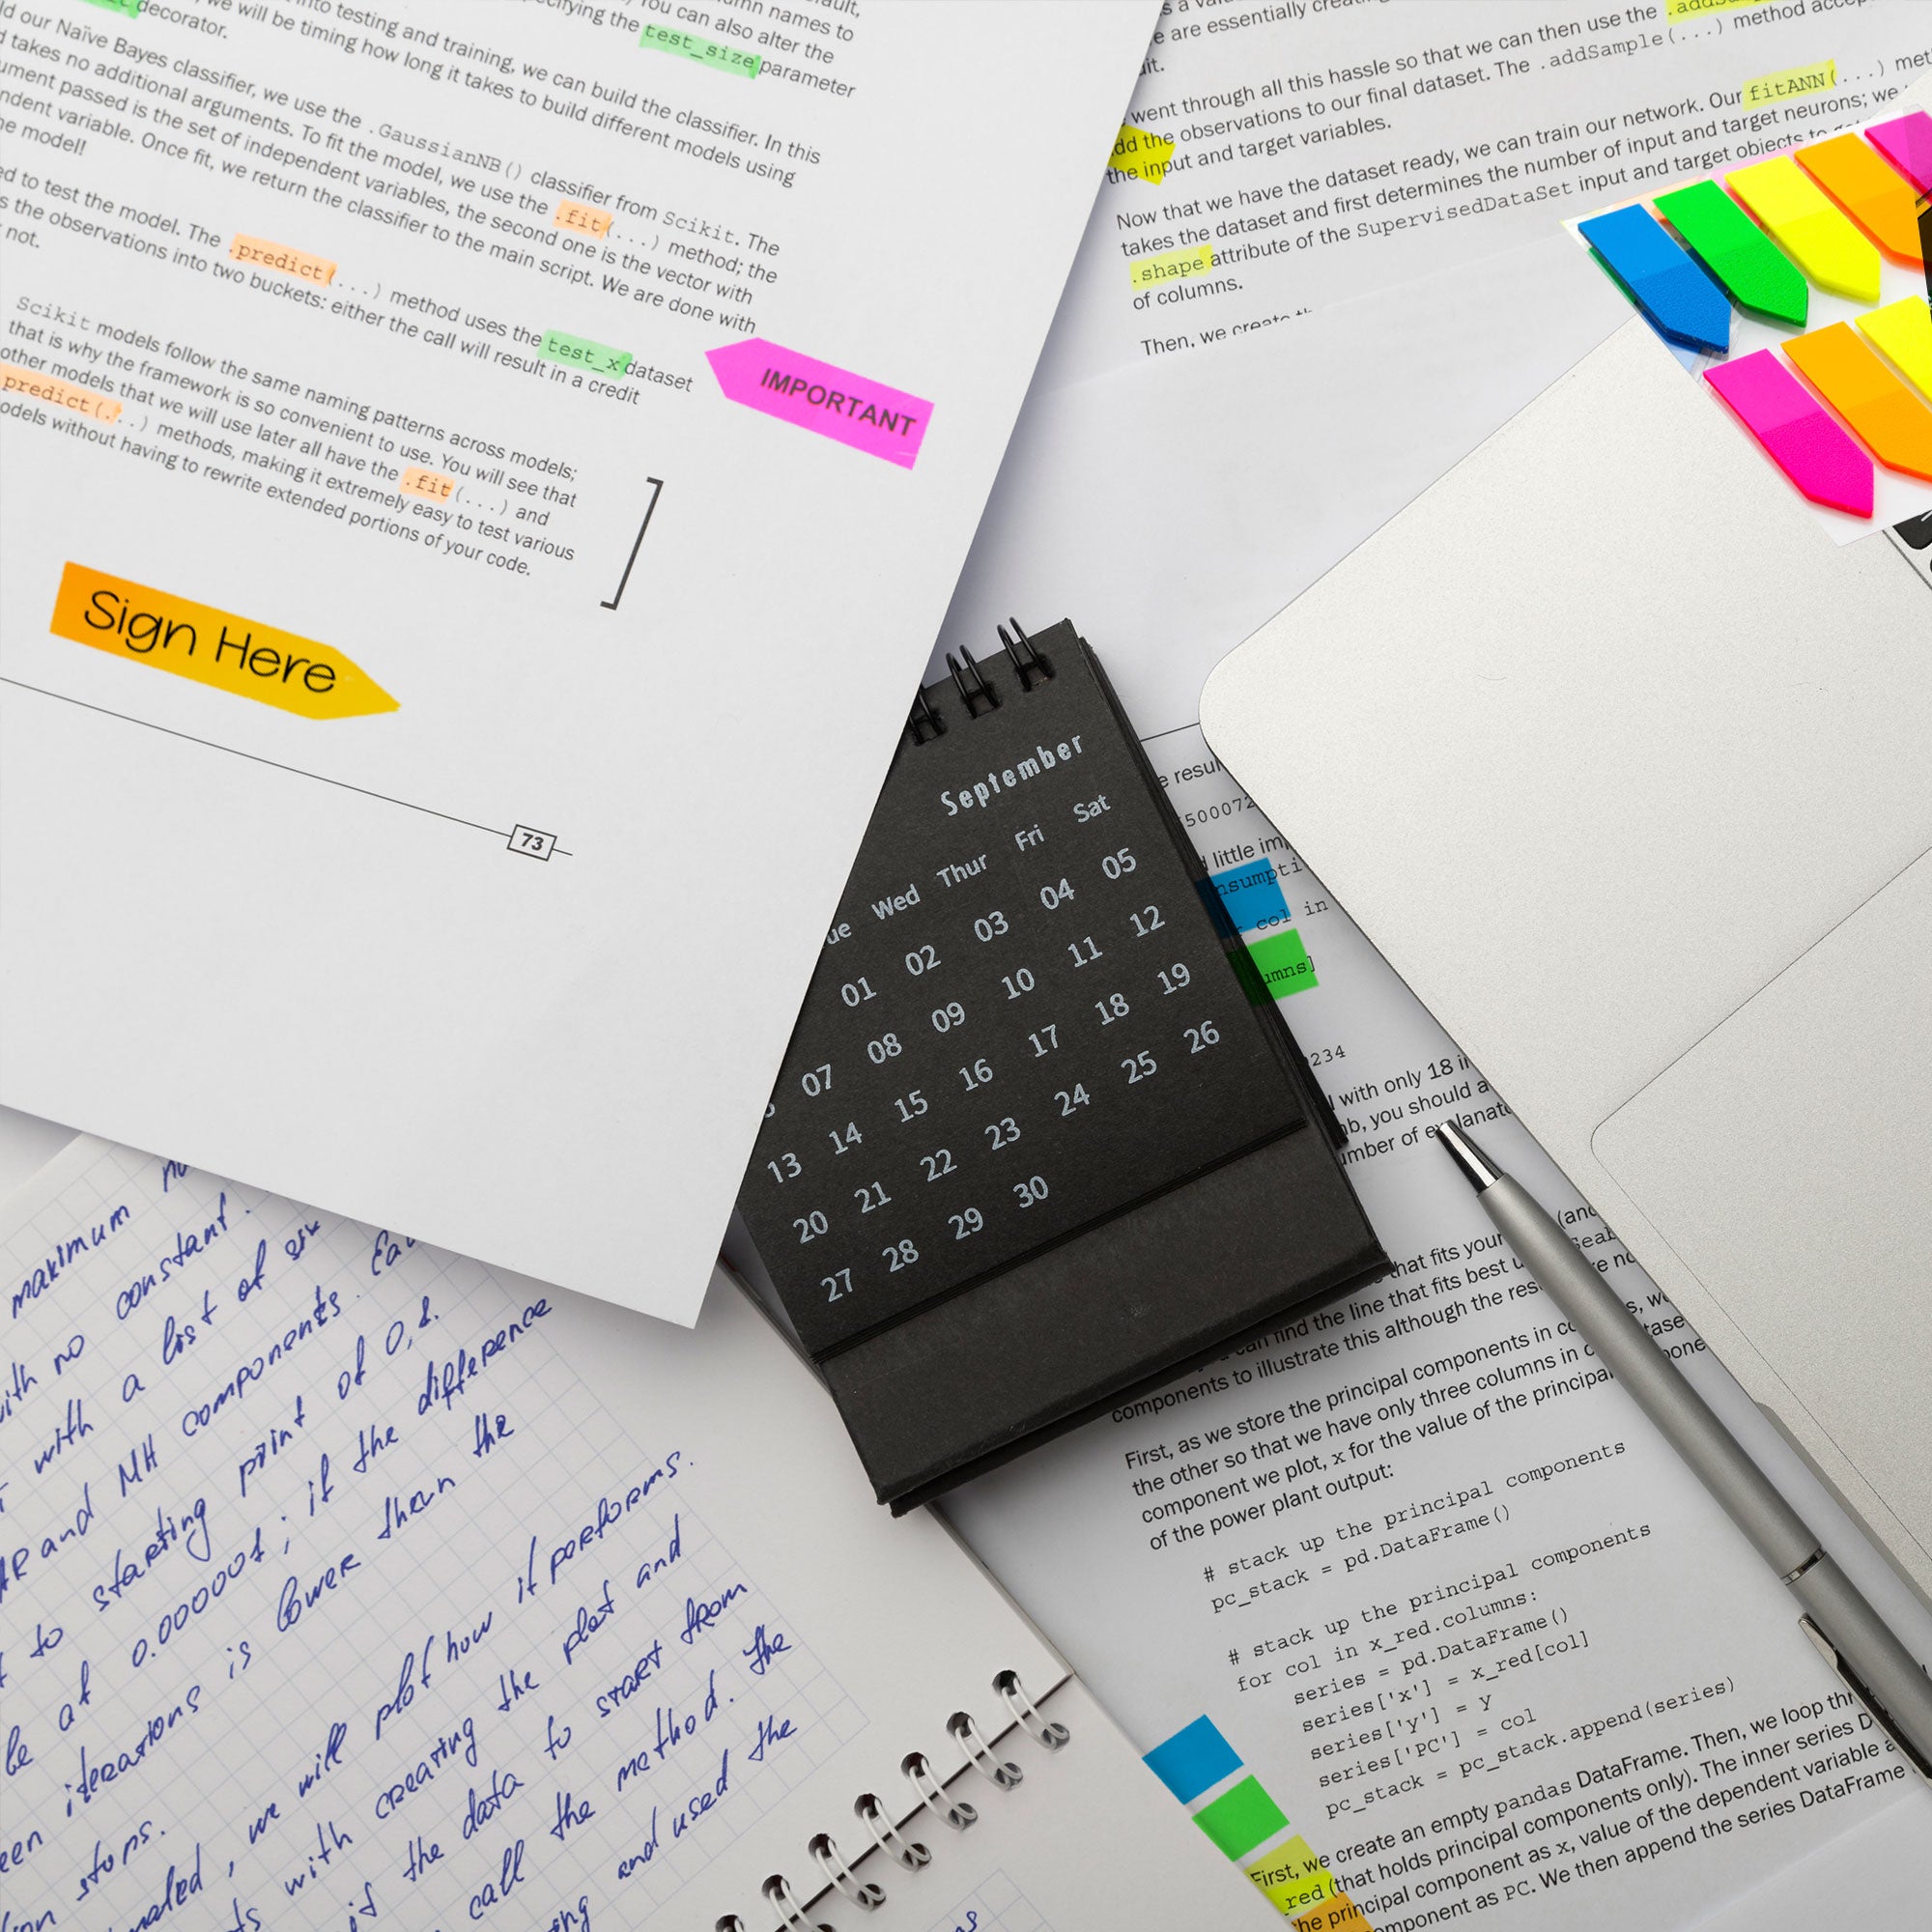 into testing and training, we can build the classifier. In this
decorator.
we will be timing how long it takes to build different models using
umn names to
You can also alter the
cifying the test_size parameter
our Naïve Bayes classifier, we use the .GaussianNB() classifier from Scikit. The
takes no additional arguments. To fit the model, we use the .fit(...) method; the
passed is the set of independent variables, the second one is the vector with
variable. Once fit, we return the classifier to the main script. We are done with
model!
to test the model. The .predict(...) method uses the test_x dataset
the observations into two buckets: either the call will result in a credit
not.
Scikit models follow the same naming patterns across models;
that is why the framework is so convenient to use. You will see that
other models that we will use later all have the .fit(...) and
predict(...) methods, making it extremely easy to test various
models without having to rewrite extended portions of your code.
IMPORTANT
Sign Here
73
are essentially
went through all this hassle so that we can then use the
add the observations to our final dataset. The .addSample(...) method
the input and target variables.
Now that we have the dataset ready, we can train our network. Our fitANN(...)
takes the dataset and first determines the number of input and target neurons; we
.shape attribute of the SupervisedDataSet input and target objects to
of columns.
Then, we create
September
Wed Thur Fri Sat
01 02 03 04 05
07 08 09 10 11 12
13 14 15 16 17 18 19
20 21 22 23 24 25 26
27 28 29 30
little
col in
umns]
234
with only 18
you should
number of
that fits your
find the line that fits best
components to illustrate this although the
First, as we store the principal components in
the other so that we have only three columns in
component we plot, x for the value of the principal
of the power plant output:
# stack up the principal components
pc_stack = pd.DataFrame()
# stack up the principal components
for col in x_red.columns:
series = pd.DataFrame()
series['x'] = x_red[col]
series['y'] = y
series['PC'] = col
pc_stack = pc_stack.append(series)
First, we create an empty pandas DataFrame. Then, we loop
red (that holds principal components only). The inner series
the principal component as x, value of the dependent variable
component as PC. We then append the series DataFrame
maximum
with no constant.
with a list of six
AR and MA components.
to starting point of 0,1.
at 0.000001; if the difference
iterations is lower than the
stops.
we will plot how it performs.
with creating the plot and
if the data to start from
call the method. The
and used the